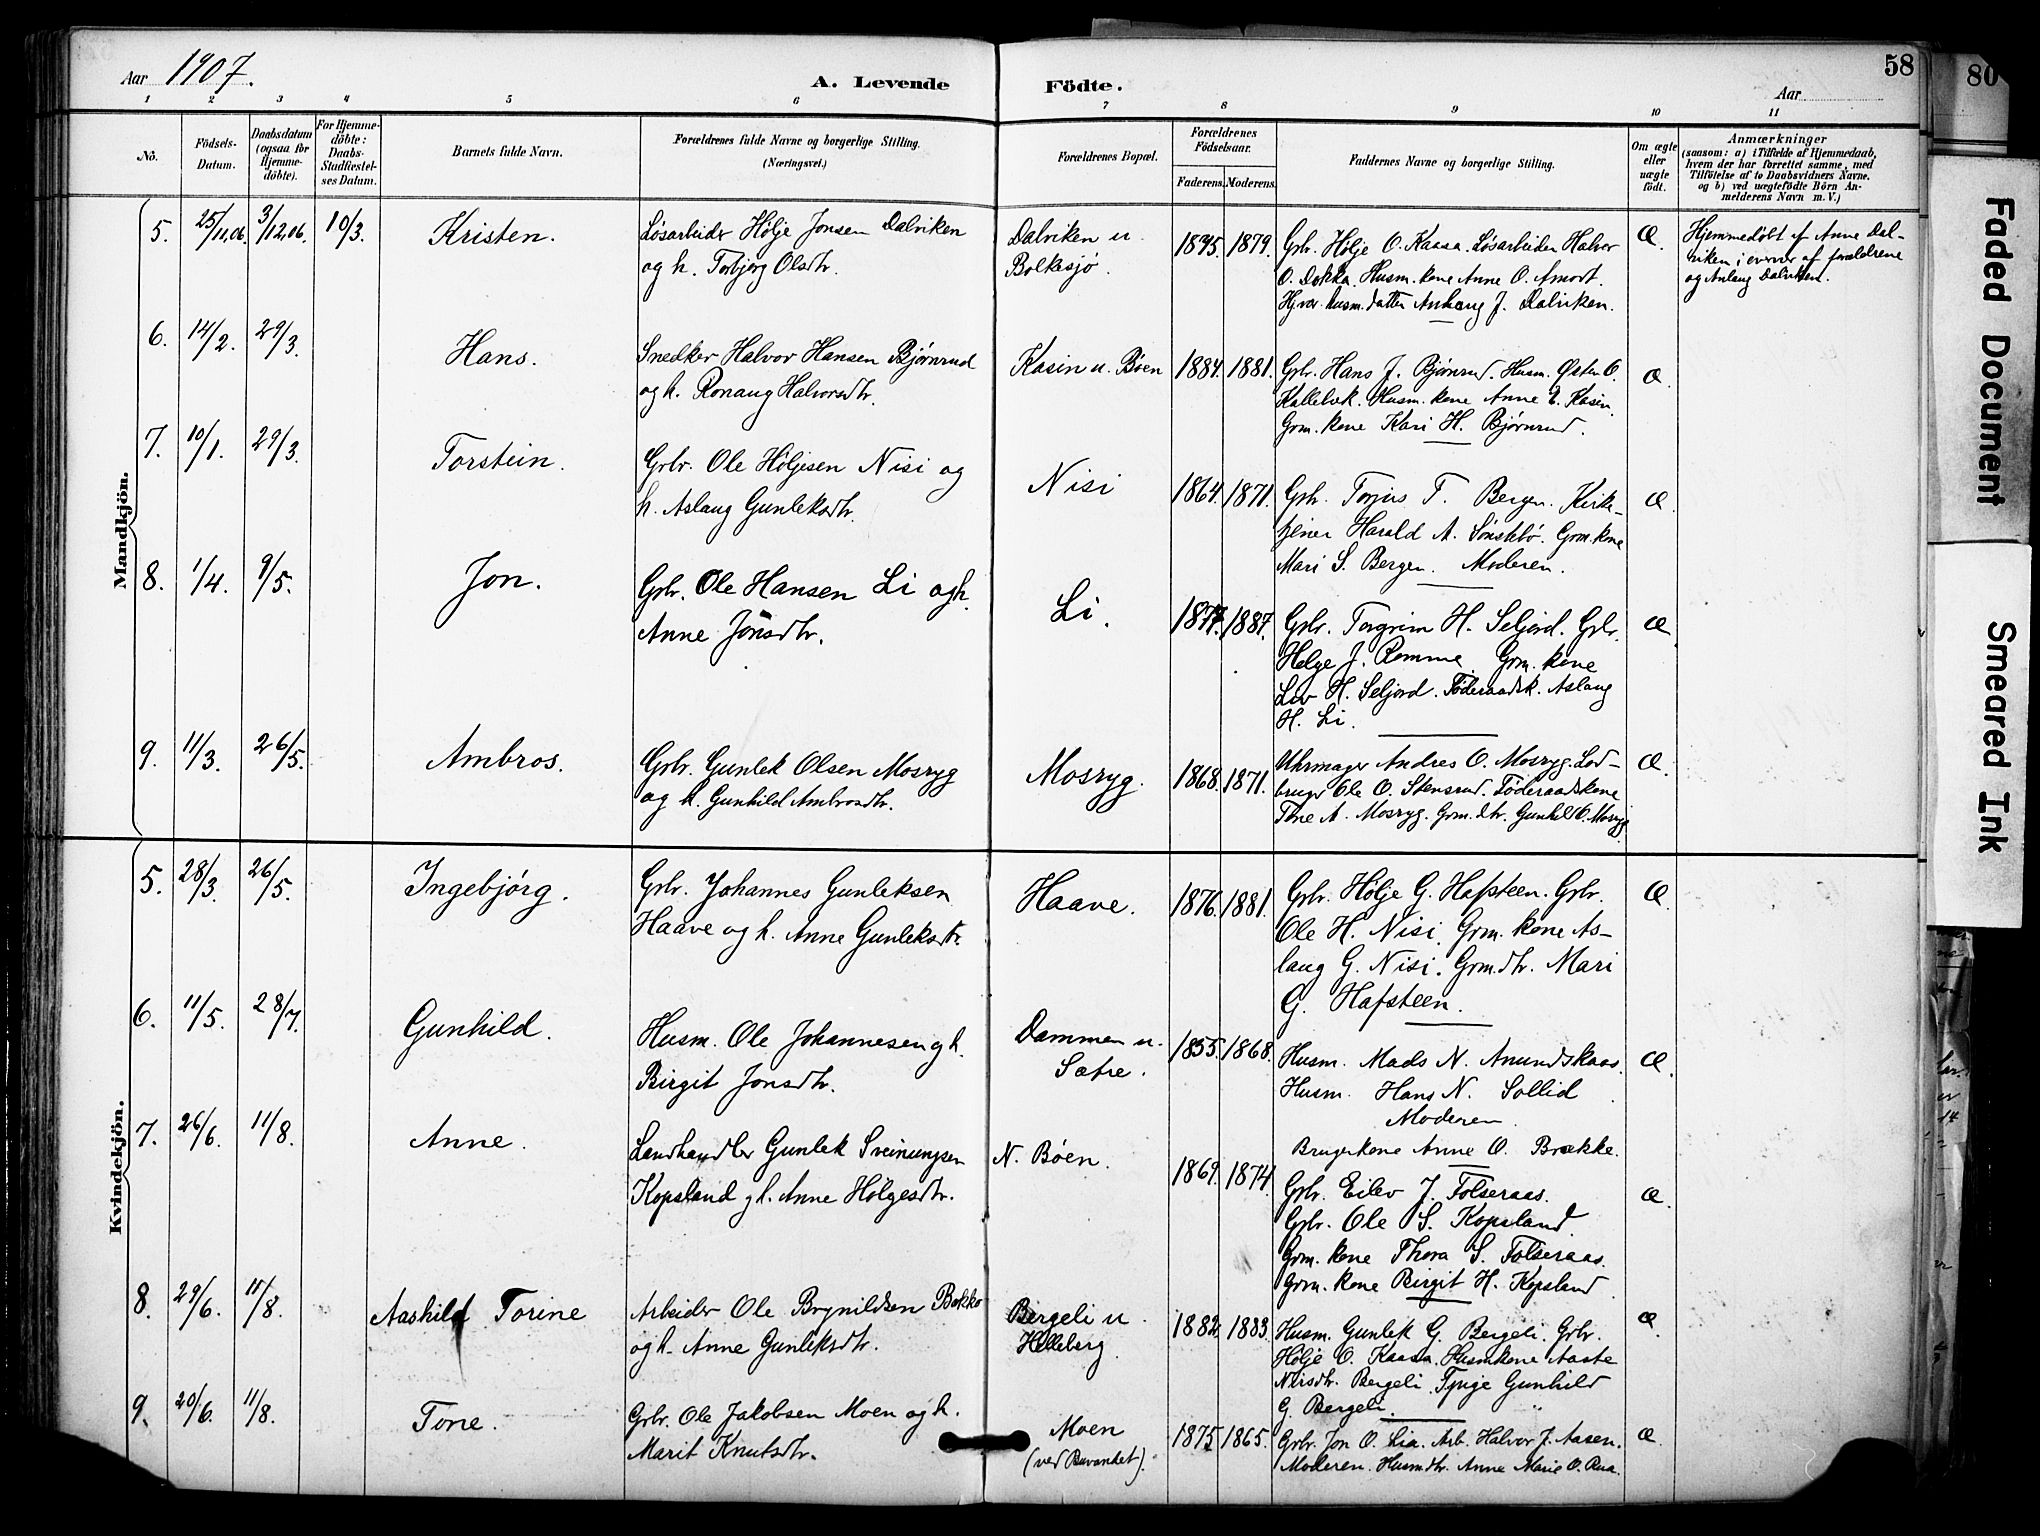 Aar 1907.
A. Levende Födte.
58
80
Aar
1 2 3 4 5 6 7 8 9 10 11
No.
Födsels-
Datum.
Daabsdatum
(ogsaa for
Hjemme-
döbte).
For Hjemme-
döbte:
Daabs-
Stadfæstel-
ses Datum.
Barnets fulde Navn.
Forældrenes fulde Navne og borgerlige Stilling.
(Næringsvei.)
Forældrenes Bopæl.
Forældrenes
Födselsaar.
Faderens. Moderens.
Faddernes Navne og borgerlige Stilling.
Om ægte
eller
uægte
födt.
Anmærkninger
(saasom: a) i Tilfælde af Hjemmedaab,
hvem der har forrettet samme, med
Tilföielse af to Daabsvidners Navne.
og b) ved uægtefödte Börn An-
melderens Navn m. V.)
Mandkjön.
5. 25/11,06. 3/12,06. 10/3. Kristen.
Løsarbeider Hølje Jonsen Dalviken
og h. Torbjørg Olsdtr.
Dalviken u.
Bolkesjø.
1875. 1879.
Grbr. Hølje O. Kaasa. Løsarbeider Halvor
O. Dokka. Husm. kone Anne O. Amort.
Hjvær. husm. datter Anlaug J. Dalviken.
Æ.
Hjemmedøbt af Anne Dal-
viken i overvær af forældrene
og Anlaug Dalviken.
6. 14/2. 29/3. Hans.
Snedker Halvor Hansen Bjørnrud
og h. Ronaug Halvorsdtr.
Kasin u. Bøen
1884. 1881.
Grbr. Hans J. Bjørnrud. Husm. Østen O.
Kallebæk. Husm. kone Anne E. Kasin.
Grm. kone Kari H. Bjørnrud.
Æ.
7. 10/1. 29/3. Torstein.
Grbr. Ole Høljesen Nisi og
h. Aslaug Gunleksdtr.
Nisi
1864. 1871.
Grbr. Torjus T. Bergen. Kirke-
tjener Harald A. Sønstebø. Grm. kone
Mari S. Bergen. Moderen.
Æ.
8. 1/4. 9/5. Jon.
Grbr. Ole Hansen Li og h.
Anne Jonsdtr.
Li.
1877. 1887.
Grbr. Torgrim H. Seljord. Grbr.
Helge J. Romme. Grm. kone
Liv H. Seljord. Føderaadsk. Aslaug
H. Li.
Æ
9. 11/3. 26/5. Ambros.
Grbr. Gunlek Olsen Mosryg
og h. Gunhild Ambrosdtr.
Mosryg.
1868. 1871.
Uhrmager Andres O. Mosryg. Lod-
bruger Ole O. Stensrud. Føderaadskone
Tone A. Mosryg. Grm. dtr. Gunhild O. Mosryg
Æ.
Kvindekjön.
5. 28/3. 26/5. Ingebjørg.
Grbr. Johannes Gunleksen
Haave og h. Anne Gunleksdtr.
Haave.
1876. 1881.
Grbr. Hølje G. Hafsteen. Grbr.
Ole H. Nisi. Grm. kone As-
laug G. Nisi. Grm. dtr. Mari
G. Hafsteen.
Æ.
6. 11/5. 28/7. Gunhild.
Husm. Ole Johannesen og h.
Birgit Jonsdtr.
Dammen u.
Sætre.
1855. 1868.
Husm. Mads N. Anundskaas.
Husm. Hans N. Sollid
Moderen.
Brugerkone Anne O. Brække.
Æ.
7. 26/6. 11/8. Anne.
Landhandler Gunlek Sveinungsen
Kopsland og h. Anne Holgesdtr.
N. Bøen.
1869. 1874.
Grbr. Eilev J. Folseraas.
Grbr. Ole S. Kopsland
Grm. kone Thora S. Folseraas.
Grm. kone Birgit H. Kopsland
Æ.
8. 29/6. 11/8. Aashild Torine
Arbeider Ole Brynildsen Bakko
og h. Anne Gunleksdtr.
Bergeli u.
Helleberg.
1882. 1883.
Husm. Gunlek G. Bergeli. Grbr.
Hølje O. Kaasa. Husmkone Aaste
Nilsdtr. Bergeli. Tj.pige Gunhild
G. Bergeli.
Æ.
9. 20/6. 11/8. Tone.
Grbr. Ole Jakobsen Moen og h.
Marit Knutsdtr.
Moen
1875. 1865.
Grbr. Jon O. Lia. Arb. Halvor J. Aasen.
Moderen. Husm. dtr. Anne Marie O. Rua.
Æ.
Faded Document
Smeared Ink